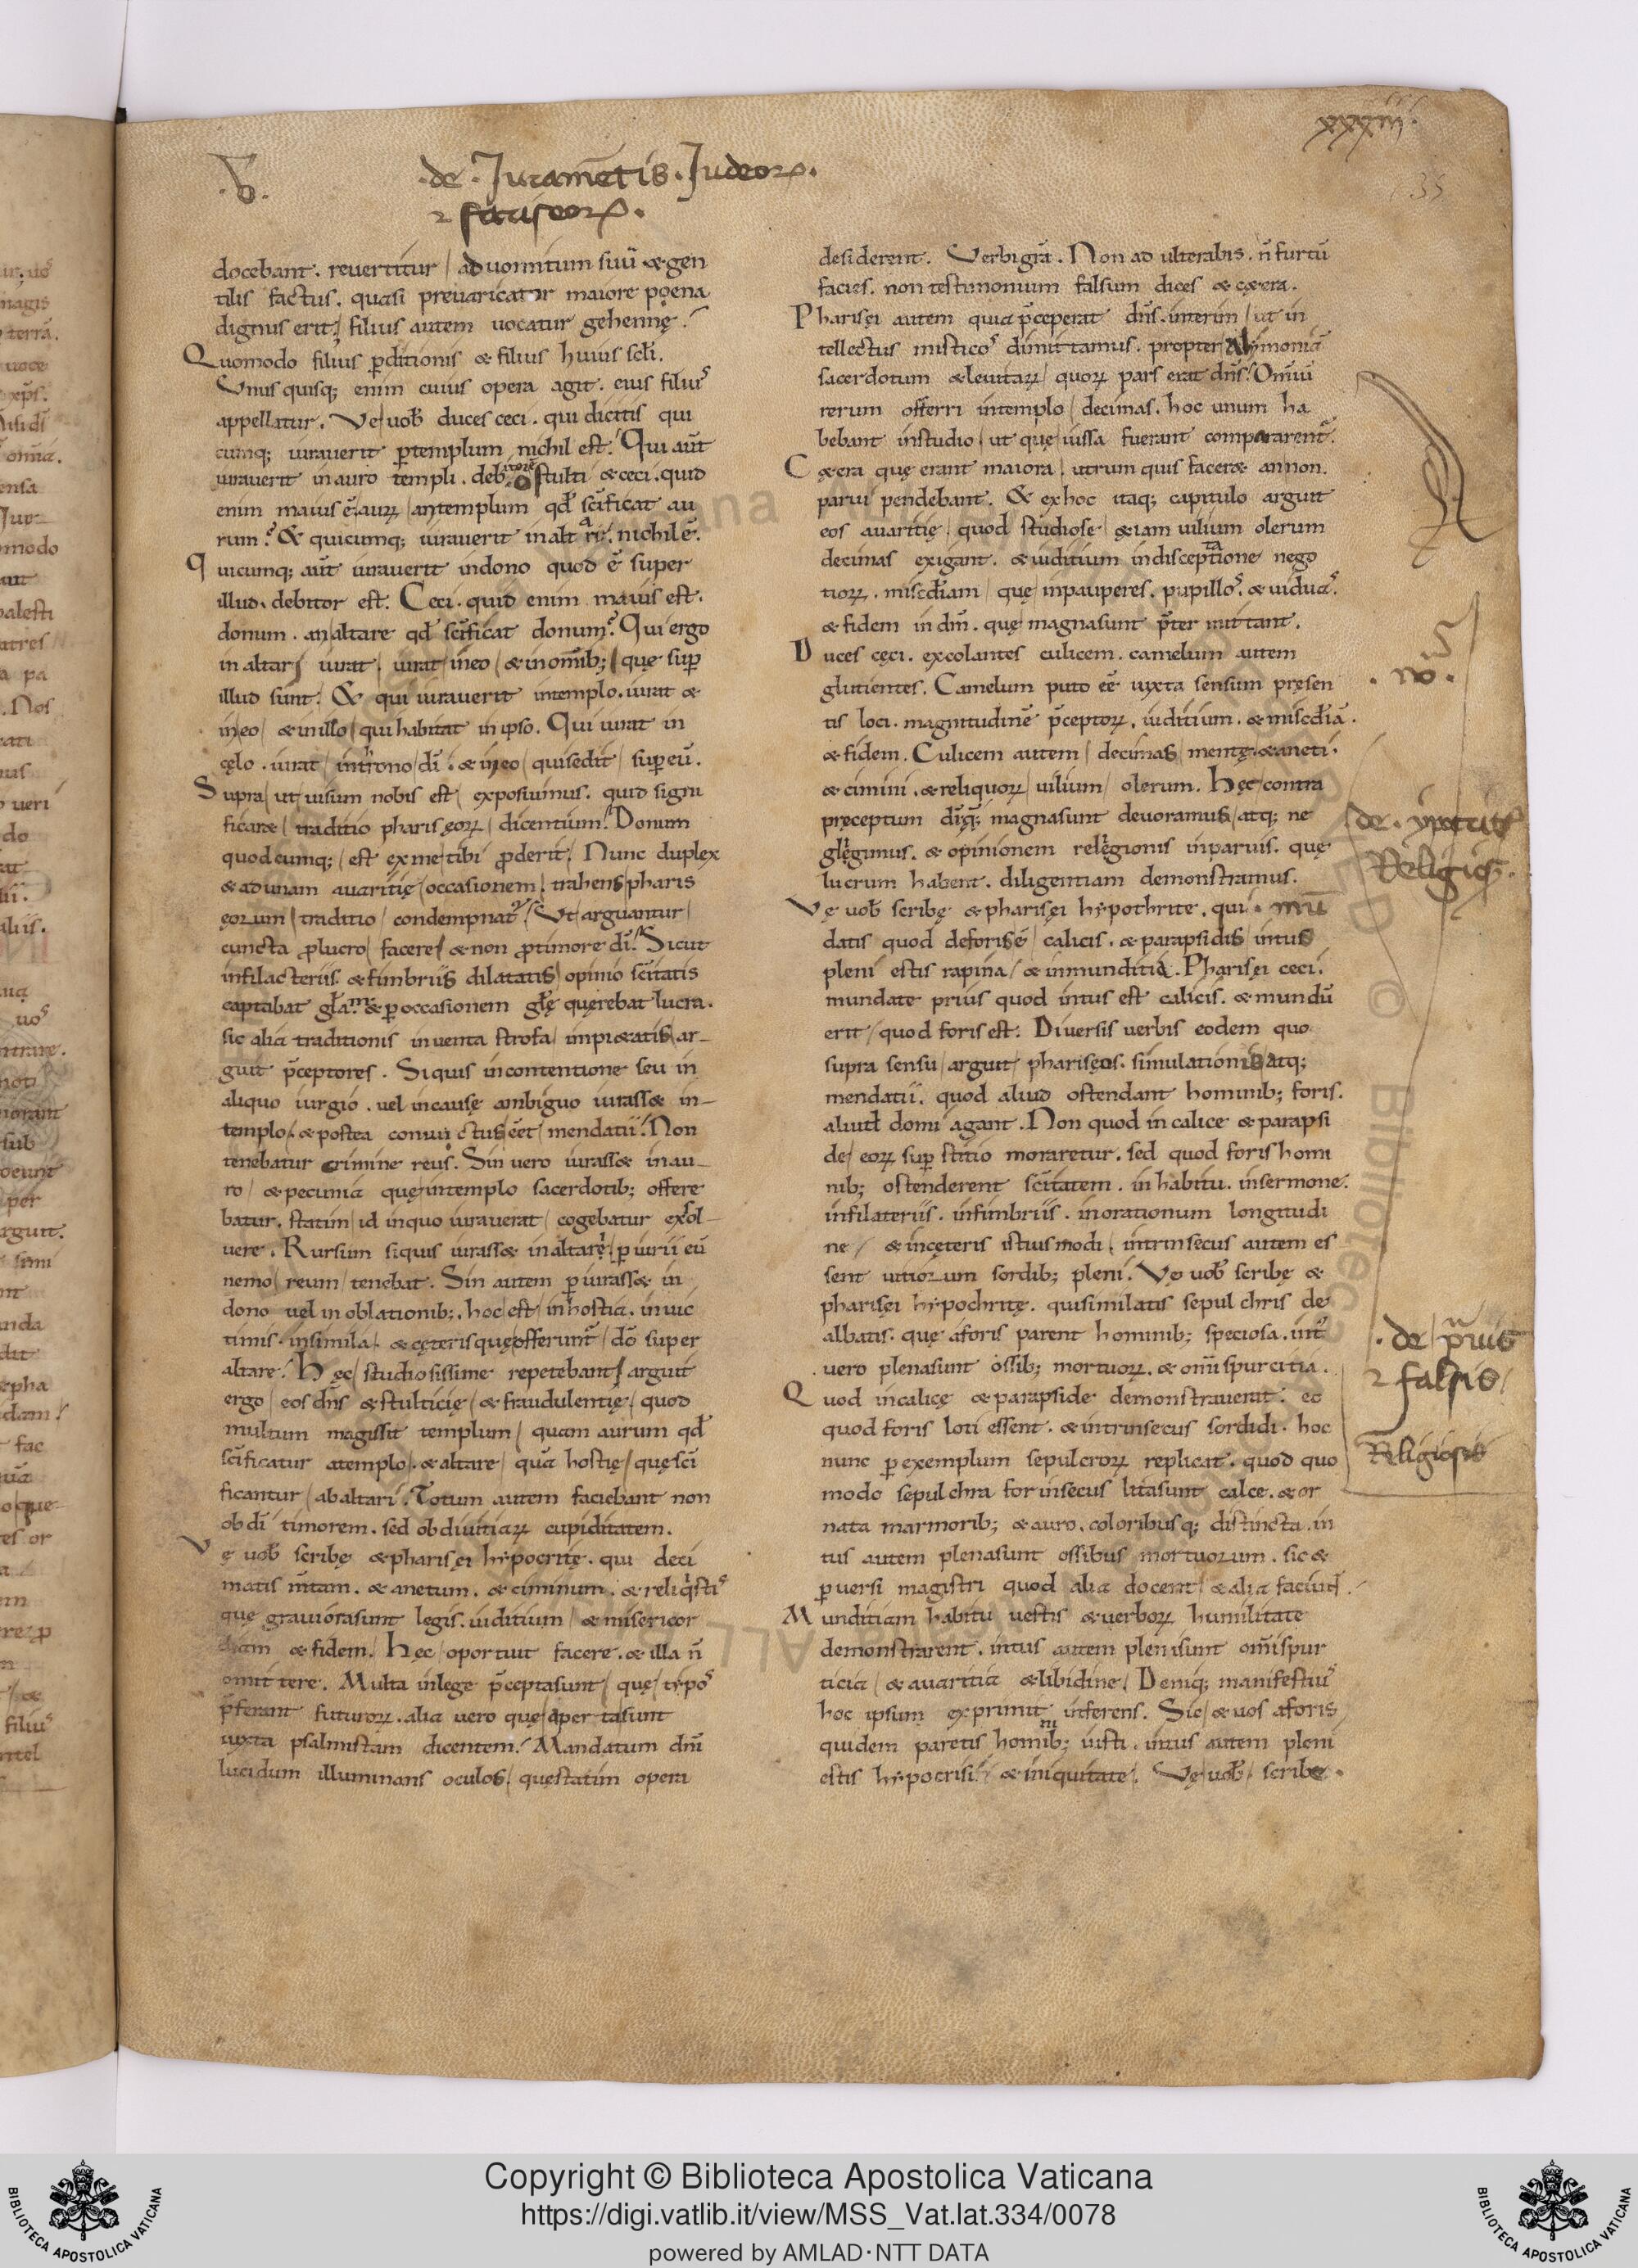 xxxiii.
135
.b.
.de.Juramētis.Judeoꝝ.
⁊ fariseoꝝ.
docebant. reuertitur / ad uomitum suū & gen
tilis factus. quasi preuaricator maiore poena
dignus erit; filius autem uocatur gehennę.
Quomodo filius ꝑditionis & filius huius scłi.
Vnus quisq; enim cuius opera agit. eius filius
appellatur. Ve uob duces ceci. qui dicitis qui
cumq; iurauerit ꝑtemplum nichil est. Qui aut̄
iurauerit in auro templi. debitor ē. o stulti & ceci. quid
enim maius ē. auꝝ / an templum qđ scīficat au
rum? & quicumq; iurauerit in altari. nichil ē.
Quicumq; aut̄ iurauerit indono quod ē super
illud. debitor est. Ceci. quid enim maius est.
donum. an altare qđ scīficat donum? Qui ergo
in altari iurat / iurat ineo / & in omīb; / que suꝑ
illud sunt. & qui iurauerit intemplo. iurat &
ineo / & inillo / qui habitat in ipso. Qui iurat in
cęlo. iurat / introno / dī. & ineo / quisedit / super eū.
Supra / ut uisum nobis est / exposuimus. quid signi
ficaret / traditio phariseoꝝ / dicentium. Donum
quodcumq; / est ex me / tibi ꝓderit. Nunc duplex
& ad unam auaritię / occasionem / trahens / pharis
ęorum / traditio / condempnat̄. Vt arguantur /
cuncta ꝓlucro / facere / & non ꝓtimore dī. Sicut
infilacteriis. & fimbriis dilatatis / opinio scītatis
captabat głam. & ꝑ occasionem głę querebat lucra.
sic alia traditionis inuenta strofa / impietatis / ar-
guit p̄ceptores. Siquis incontentione seu in
aliquo iurgio. uel incausę ambiguo iurass& in-
templo. & postea conuictus eēt / mendatii. Non
tenebatur crimine reus. Sin uero iurass& inau-
ro / & pecunia quę intemplo sacerdotib; offere
batur. statim / id inquo iurauerat / cogebatur exsol-
uere. Rursum siquis iurass& in altare / ꝑiurii eū
nemo / reum / tenebat. Sin autem ꝑiurass& in
dono uel in oblationib; . hoc / est / inhostia. inuic
timis. insimila. & cęteris quę offerunt̄ / dō super
altare. Hęc / studiosissime repetebant / arguit
ergo / eos dn̄s & stulticię / & fraudulentię / quod
multum magis sit templum / quam aurum qđ
scīficatur atemplo. & altare / quā hostię / quę scī
ficantur / ab altari. Totum autem faciebant non
ob dī timorem. sed ob diuitiaꝝ cupiditatem.
Vę uob scribę & pharisęi hypocritę. qui deci
matis mentam. & anetum. & ciminum. & reliqistis
quę grauiora sunt legis. iuditium / & misericor
diam & fidem. Hęc / oportuit facere. & illa n̄
omittere. Multa inlege p̄cepta sunt / quę / typos
p̄ferant futuroꝝ. alia uero quę aperta sunt
iuxta psalmistam dicentem. Mandatum dn̄i
lucidum illuminans oculos / quę statim opera
desiderent. Verbi grā. Non adulterabis. n̄ furtū
facies. non testimonium falsum dices & c&era.
Pharisęi autem quia p̄ceperat dn̄s. interim / ut in
tellectus misticos dimittamus. propter alimoniā
sacerdotum & leuitaꝝ / quoꝝ pars erat dn̄s. Omniū
rerum offerri intemplo / decimas. hoc unum ha
bebant instudio / ut quę iussa fuerant compararent̄.
C&era quę erant maiora. utrum quis facer& an non.
parui pendebant. & ex hoc itaq; capitulo arguit
eos auaritię / quod studiose / &iam uilium olerum
decimas exigant. & iuditium indisceptatione nego
tioꝝ. miscdiam / quę inpauperes. pupillos. & uiduas.
& fidem in dm̄. quę magna sunt p̄termittant.
Duces cęci. excolantes culicem. camelum autem
glutientes. Camelum puto eē iuxta sensum presen
tis loci. magnitudinē p̄ceptoꝝ. iuditium. & miscdiā.
& fidem. Culicem autem / decimas / mentę. & aneti.
& cimini. & reliquoꝝ / uilium / olerum. Hęc / contra
pręceptum dī q; magna sunt deuoramus / atq; ne
glegimus. & opinionem relegionis inparuis. quę
lucrum habent. diligentiam demonstramus.
Vę uob scribę & pharisęi hypochrite. qui mū
datis quod deforis ē / calicis. & parapsidis / intus
pleni estis rapina / & inmunditia. Pharisęi ceci.
mundate prius quod intus est calicis. & mundū
erit / quod foris est. Diuersis uerbis eodem quo
supra sensu / arguit pharisęos. simulationis atq;
mendatii. quod aliud ostendant hominib; foris.
aliud domi agant. Non quod in calice & parapsi
de / eoꝝ suꝑstitio moraretur. sed quod foris homi
nib; ostenderent scītatem. in habitu. insermone.
infilateriis. infimbriis. inorationum longitudi
ne / & incęteris istiusmodi. intrinsecus autem es
sent uitiorum sordib; pleni. Vę uob scribę &
pharisęi hypochritę. qui similatis sepulchris de
albatis. quę aforis parent hominib; speciosa. int̄
uero plena sunt ossib; mortuoꝝ. & omī spurcitia.
Quod incalicę & parapside demonstrauerat. eo
quod foris loti essent. & intrinsecus sordidi. hoc
nunc ꝑ exemplum sepulcroꝝ replicat. quod quo
modo sepulchra forinsecus lita sunt calce. & or
nata marmorib; & auro. coloribusq; distincta. in
tus autem plena sunt ossibus mortuorum. sic &
ꝑuersi magistri quod alia docent / & alia faciunt.
Munditiam habitu uestis & uerboꝝ humilitate
demonstrarent. intus autem pleni sunt omī spur
ticia / & auaritia & libidine / Deniq; manifestius
hoc ipsum exprimit inferens. Sic / & uos aforis
quidem paretis hominib; iusti. intus autem pleni
estis hypocrisi. & iniquitate. Vę uob / scribe.
.no.
de. ypocritis
Religiosis.
.de prauis
⁊ falsis /
Religiosis
Copyright © Biblioteca Apostolica Vaticana
https://digi.vatlib.it/view/MSS_Vat.lat.334/0078
powered by AMLAD·NTT DATA
BIBLIOTECA APOSTOLICA VATICANA
BIBLIOTECA APOSTOLICA VATICANA